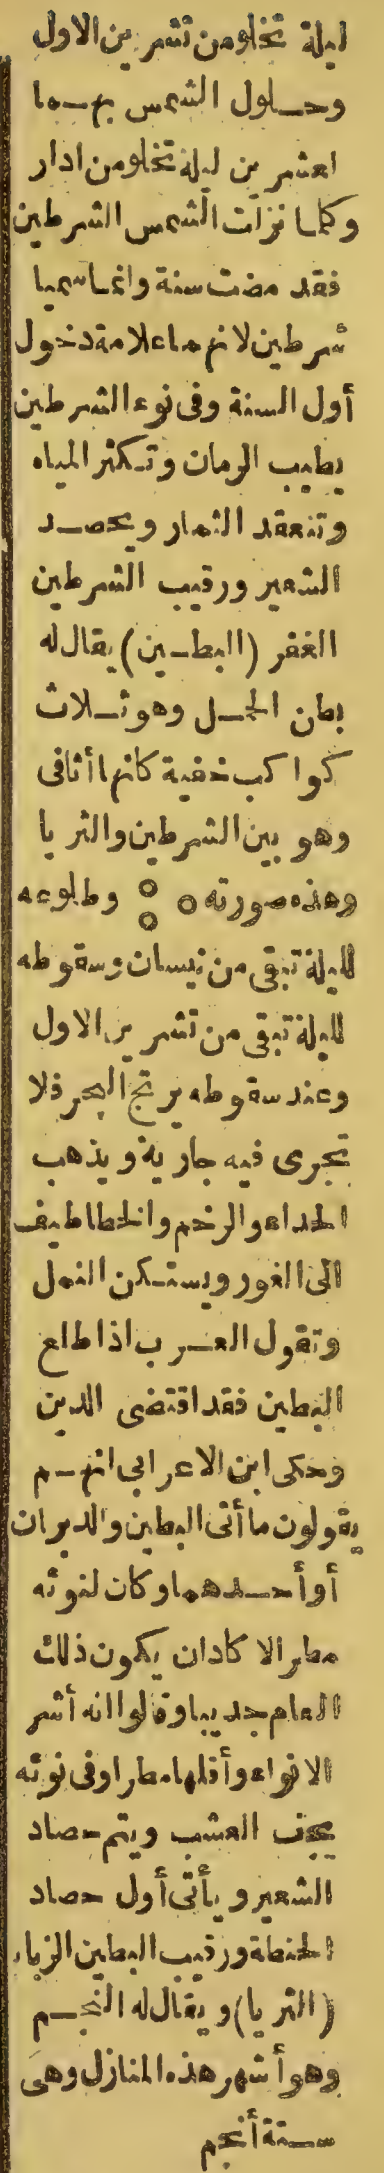 ليلة تخلومن تشرين الاول
وحلول الشمس بهما
لعشرين ليلة تخلومن ادار
وكلما نزلت الشمس الشرطين
فقد مضت سنة وانما سميا
شرطين لانهما علامة دخول
أول السنة وفى نوء الشرطين
يطيب الرمان وتكثر المياه
وتنعقد الثمار ويحصد
الشعير ورقيب الشرطين
الغفر (البطين) يقال له
بطن الحمل وهو ثلاث
كواكب خفية كانها أثافى
وهو بين الشرطين والثريا
وهذه صورته وطلوعه
لليلة تبقى من نيسان وسقوطه
لليلة تبقى من تشرين الاول
وعند سقوطه يرتج البحر فلا
تجرى فيه جارية ويذهب
الحداء والرخم والخطاطيف
الى الغور ويستكن النمل
وتقول العرب اذا طلع
البطين فقد اقتضى الدين
وحكى ابن الاعرابى انهم
يقولون ما أتى البطين والدبران
أو أحدهما وكان لنوئه
مطر الا كاد ان يكون ذلك
العام جديبا وقالوا انه أشر
الانواء وأقلها مطرا وفى نوئه
يجف العشب ويتم حصاد
الشعير ويأتى أول حصاد
الحنطة ورقيب البطين الزبانا
(الثريا) ويقال له النجم
وهو أشهر هذه المنازل وهى
ستة أنجم